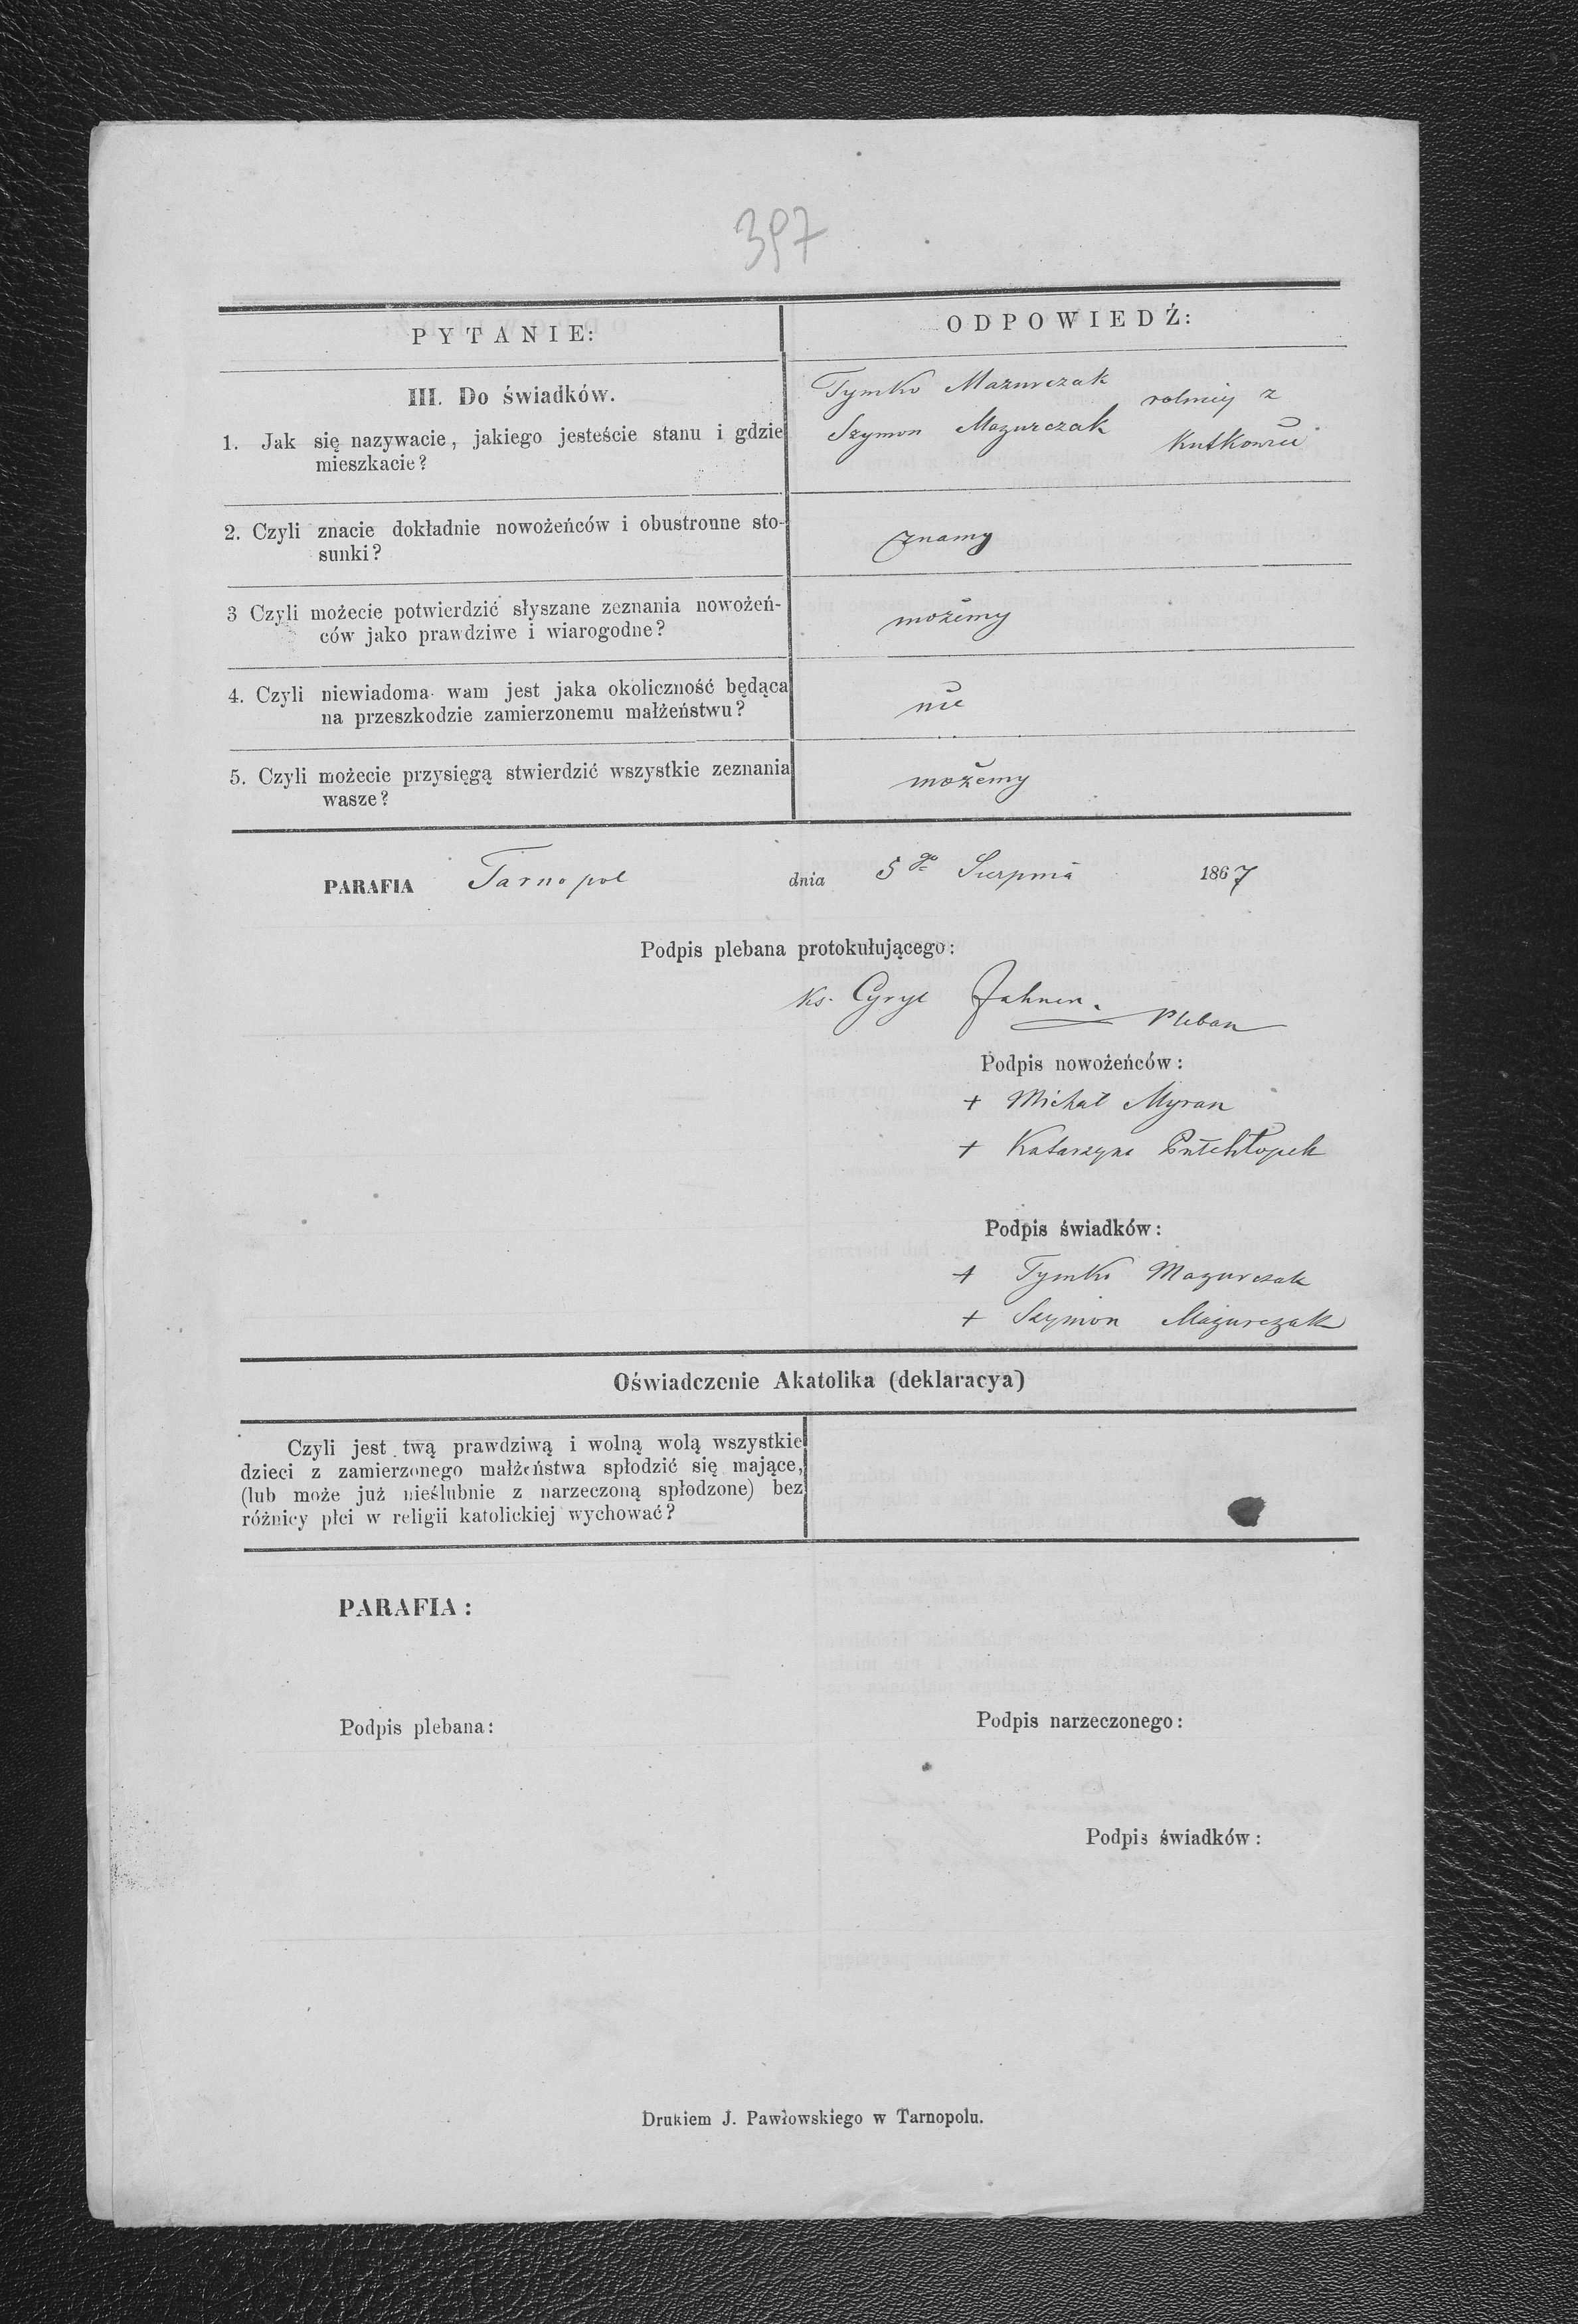 397
PYTANIE:
ODPOWIEDŹ:
III. Do świadków.
1. Jak się nazywacie, jakiego jesteście stanu i gdzie
mieszkacie?
Tymko Mazurczak
Szymon Mazurczak
rolnicy z
Kutkowiec
2. Czyli znacie dokładnie nowożeńców i obustronne sto-
sunki?
znamy
3 Czyli możecie potwierdzić słyszane zeznania nowożeń-
ców jako prawdziwe i wiarogodne?
możemy
4. Czyli niewiadoma wam jest jaka okoliczność będąca
na przeszkodzie zamierzonemu małżeństwu?
nie
5. Czyli możecie przysięgą stwierdzić wszystkie zeznania
wasze?
możemy
PARAFIA Tarnopol dnia 5go Sierpnia 1867
Podpis plebana protokułującego:
Ks. Cyryl Jahnen. Pleban
Podpis nowożeńców:
+ Michał Myran
+ Katarzyna Półchłopek
Podpis świadków:
+ Tymko Mazurczak
+ Szymon Mazurczak
Oświadczenie Akatolika (deklaracya)
Czyli jest twą prawdziwą i wolną wolą wszystkie
dzieci z zamierzonego małżeństwa spłodzić się mające,
(lub może już nieślubnie z narzeczoną spłodzone) bez
różnicy płci w religii katolickiej wychować?
PARAFIA:
Podpis plebana:
Podpis narzeczonego:
Podpis świadków:
Drukiem J. Pawłowskiego w Tarnopolu.